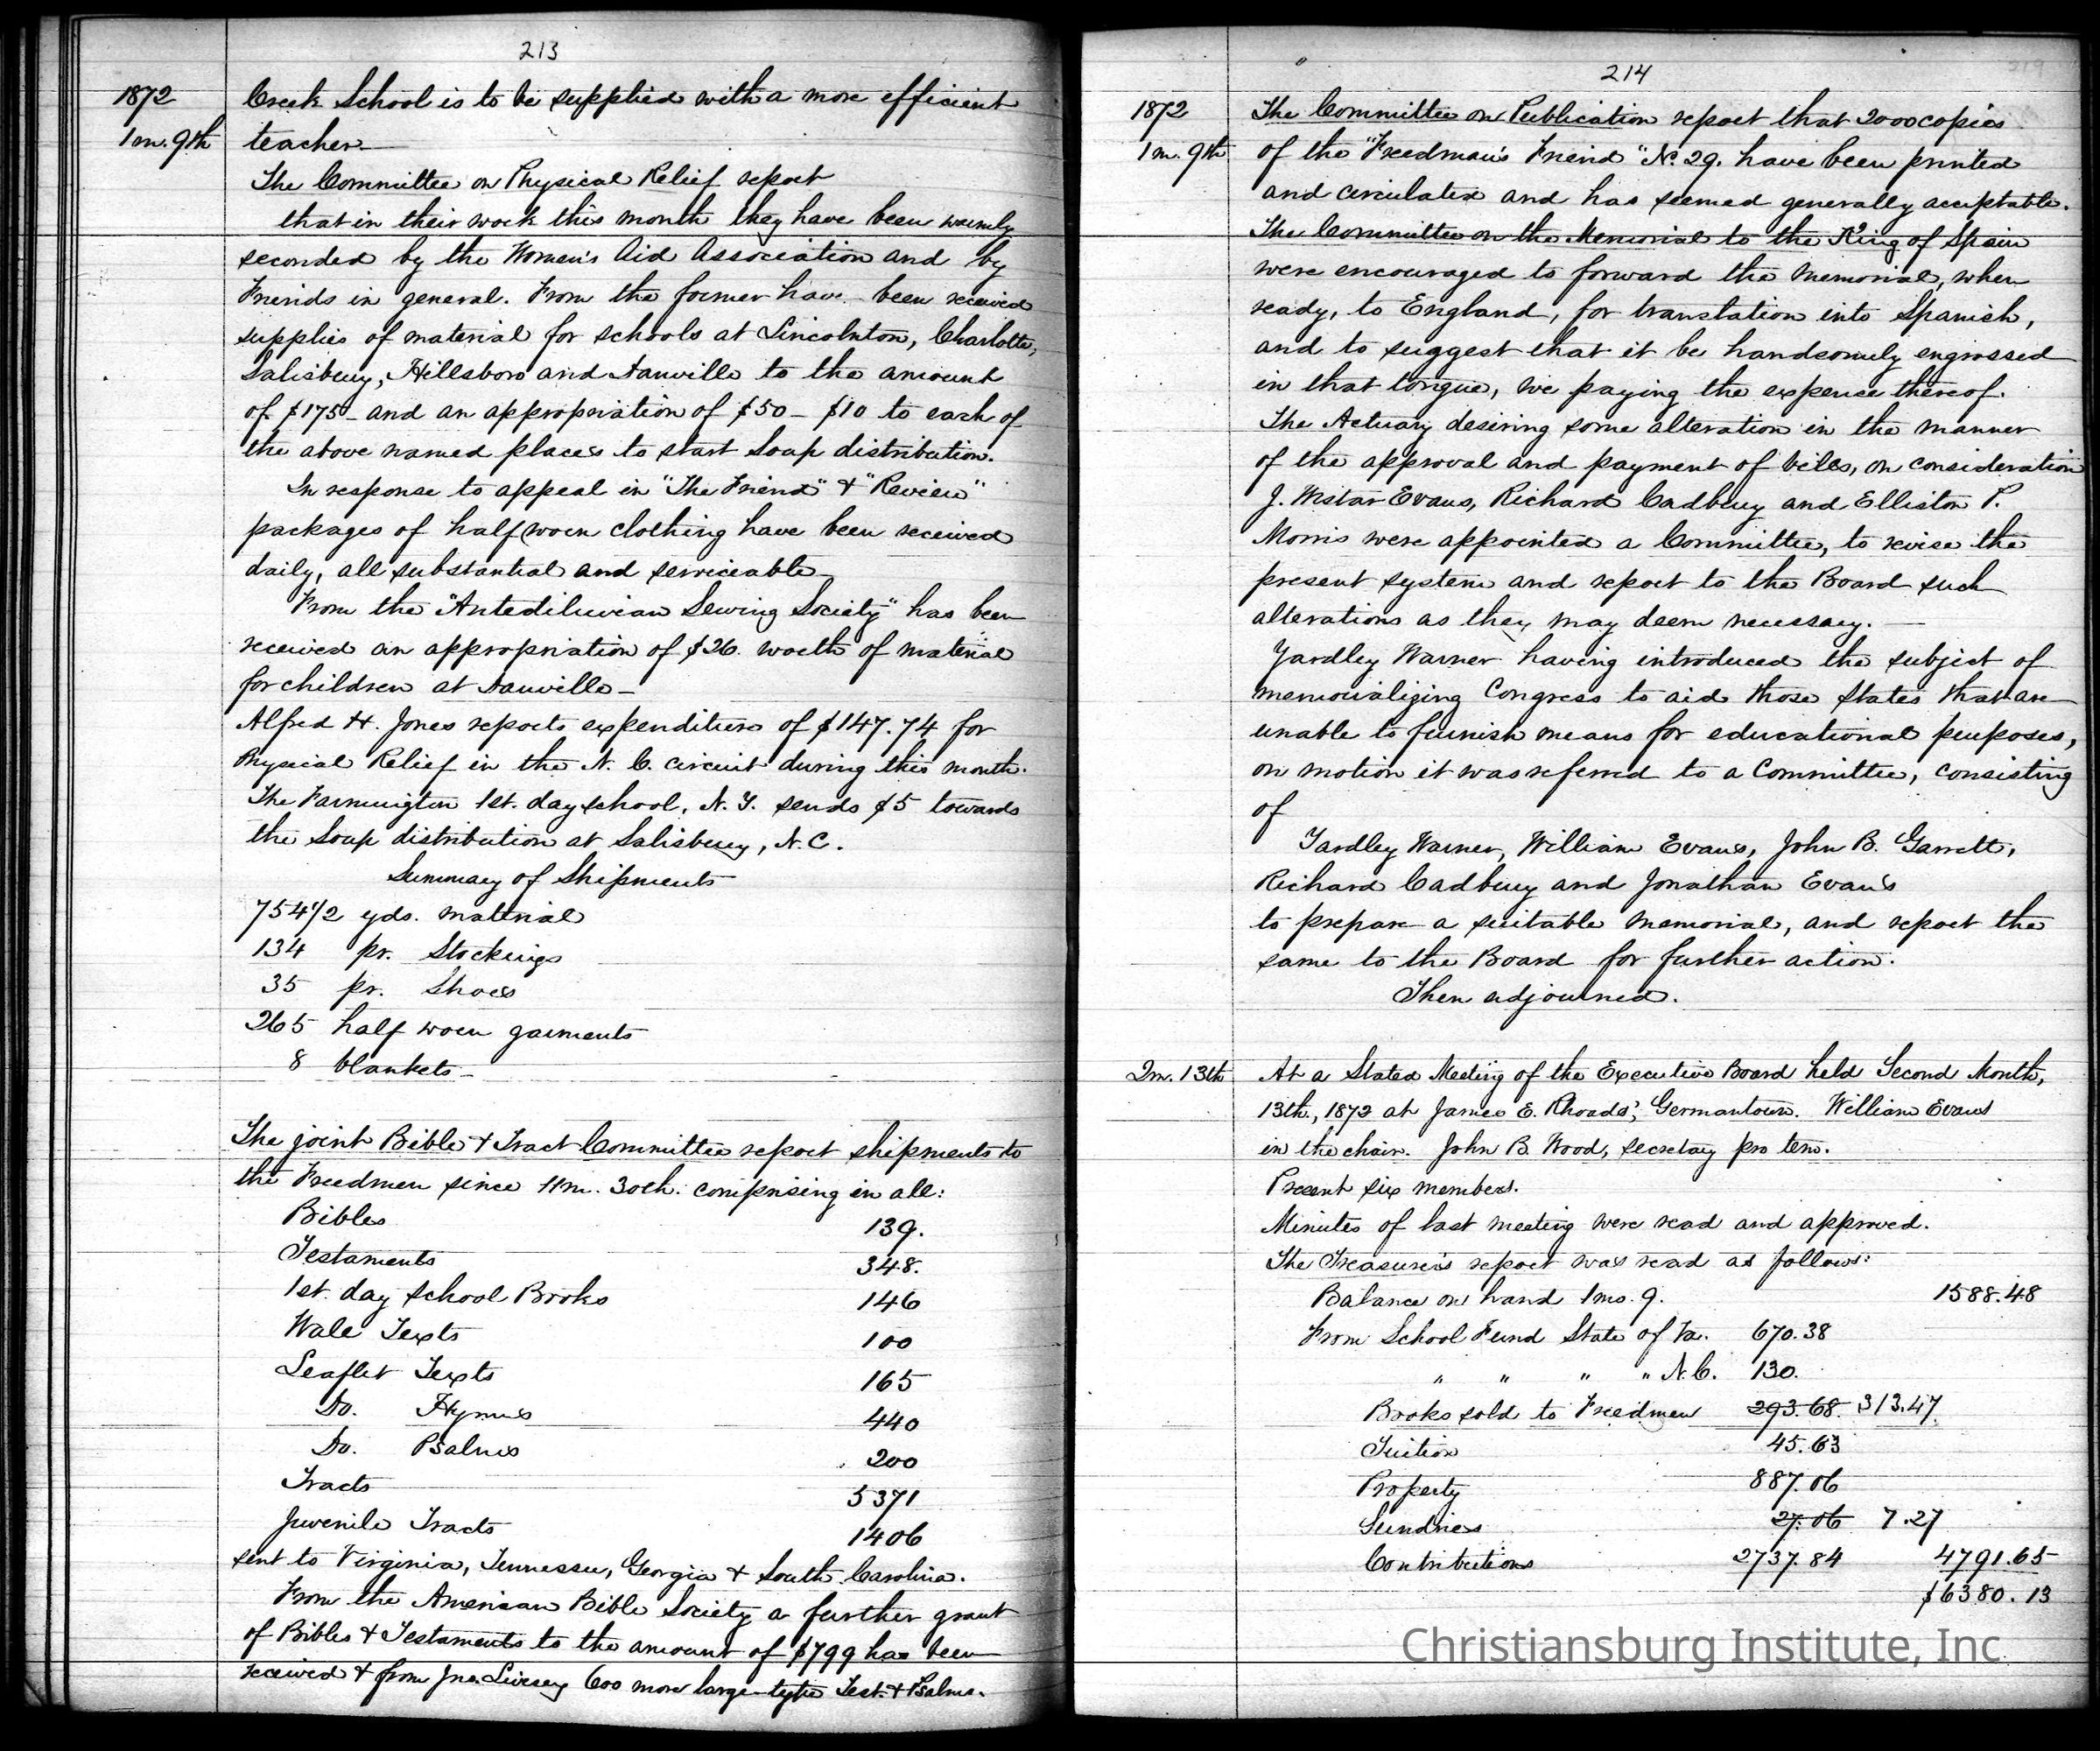 213
1872 Creek School is to be supplied with a more efficient
1m. 9th teacher.—
The Committee on Physical Relief report
that in their work this month they have been warmly
seconded by the Women's Aid Association and by
Friends in general. From the former have been received
supplies of material for schools at Lincolnton, Charlotte,
Salisbury, Hillsboro and Danville to the amount
of $175— and an appropriation of $50— $10 to each of
the above named places to start Soup distribution.
In response to appeal in "The Friend" & "Review"
packages of half worn clothing have been received
daily, all substantial and serviceable—
From the "Antediluvian Sewing Society" has been
received an appropriation of $26. worth of material
for children at Danville—
Alfred H. Jones reports expenditures of $147.74 for
Physical Relief in the N. C. circuit during this month.
The Farmington 1st. day school, N. Y. sends $5 towards
the Soup distribution at Salisbury, N. C.
Summary of Shipments
754 1/2 yds. material
134 pr. Stockings
35 pr. Shoes
265 half worn garments
8 blankets—
The joint Bible & Tract Committee report shipments to
the Freedmen since 11m. 30th. comprising in all:
Bibles 139.
Testaments 348.
1st. day school Books 146
Wale Texts 100
Leaflet Texts 165
Do. Hymns 440
Do. Psalms 200
Tracts 5371
Juvenile Tracts 1406
sent to Virginia, Tennessee, Georgia & South Carolina.
From the American Bible Society a further grant
of Bibles & Testaments to the amount of $799 has been
received & from Jno. Livesey 600 more large type Test. & Psalms.
214
1872 The Committee on Publication report that 2000 copies
1m. 9th of the "Freedman's Friend" No. 29. have been printed
and circulated and has seemed generally acceptable.
The Committee on the Memorial to the King of Spain
were encouraged to forward the memorial, when
ready, to England, for translation into Spanish,
and to suggest that it be handsomely engrossed
in that tongue, we paying the expence thereof.
The Actuary desiring some alteration in the manner
of the approval and payment of bills, on consideration
J. Wistar Evans, Richard Cadbury and Elliston P.
Morris were appointed a Committee, to revise the
present system and report to the Board such
alterations as they may deem necessary. —
Yardley Warner having introduced the subject of
memorializing Congress to aid those States that are
unable to furnish means for educational purposes,
on motion it was referred to a Committee, consisting
of
Yardley Warner, William Evans, John B. Garrett,
Richard Cadbury and Jonathan Evans
to prepare a suitable memorial, and report the
same to the Board for further action.
Then adjourned.
2m. 13th At a Stated Meeting of the Executive Board held Second Month,
13th., 1872 at James E. Rhoads', Germantown. William Evans
in the chair. John B. Wood, secretary pro tem.
Present six members.
Minutes of last meeting were read and approved.
The Treasurer's report was read as follows:
Balance on hand 1mo. 9. 1588.48
From School Fund State of Va. 670.38
" " " " N. C. 130.
Books sold to Freedmen 293.68. 313.47
Tuition 45.63
Property 887.06
Sundries 27.06 7.27
Contributions 2737.84 4791.65
$6380.13
Christiansburg Institute, Inc